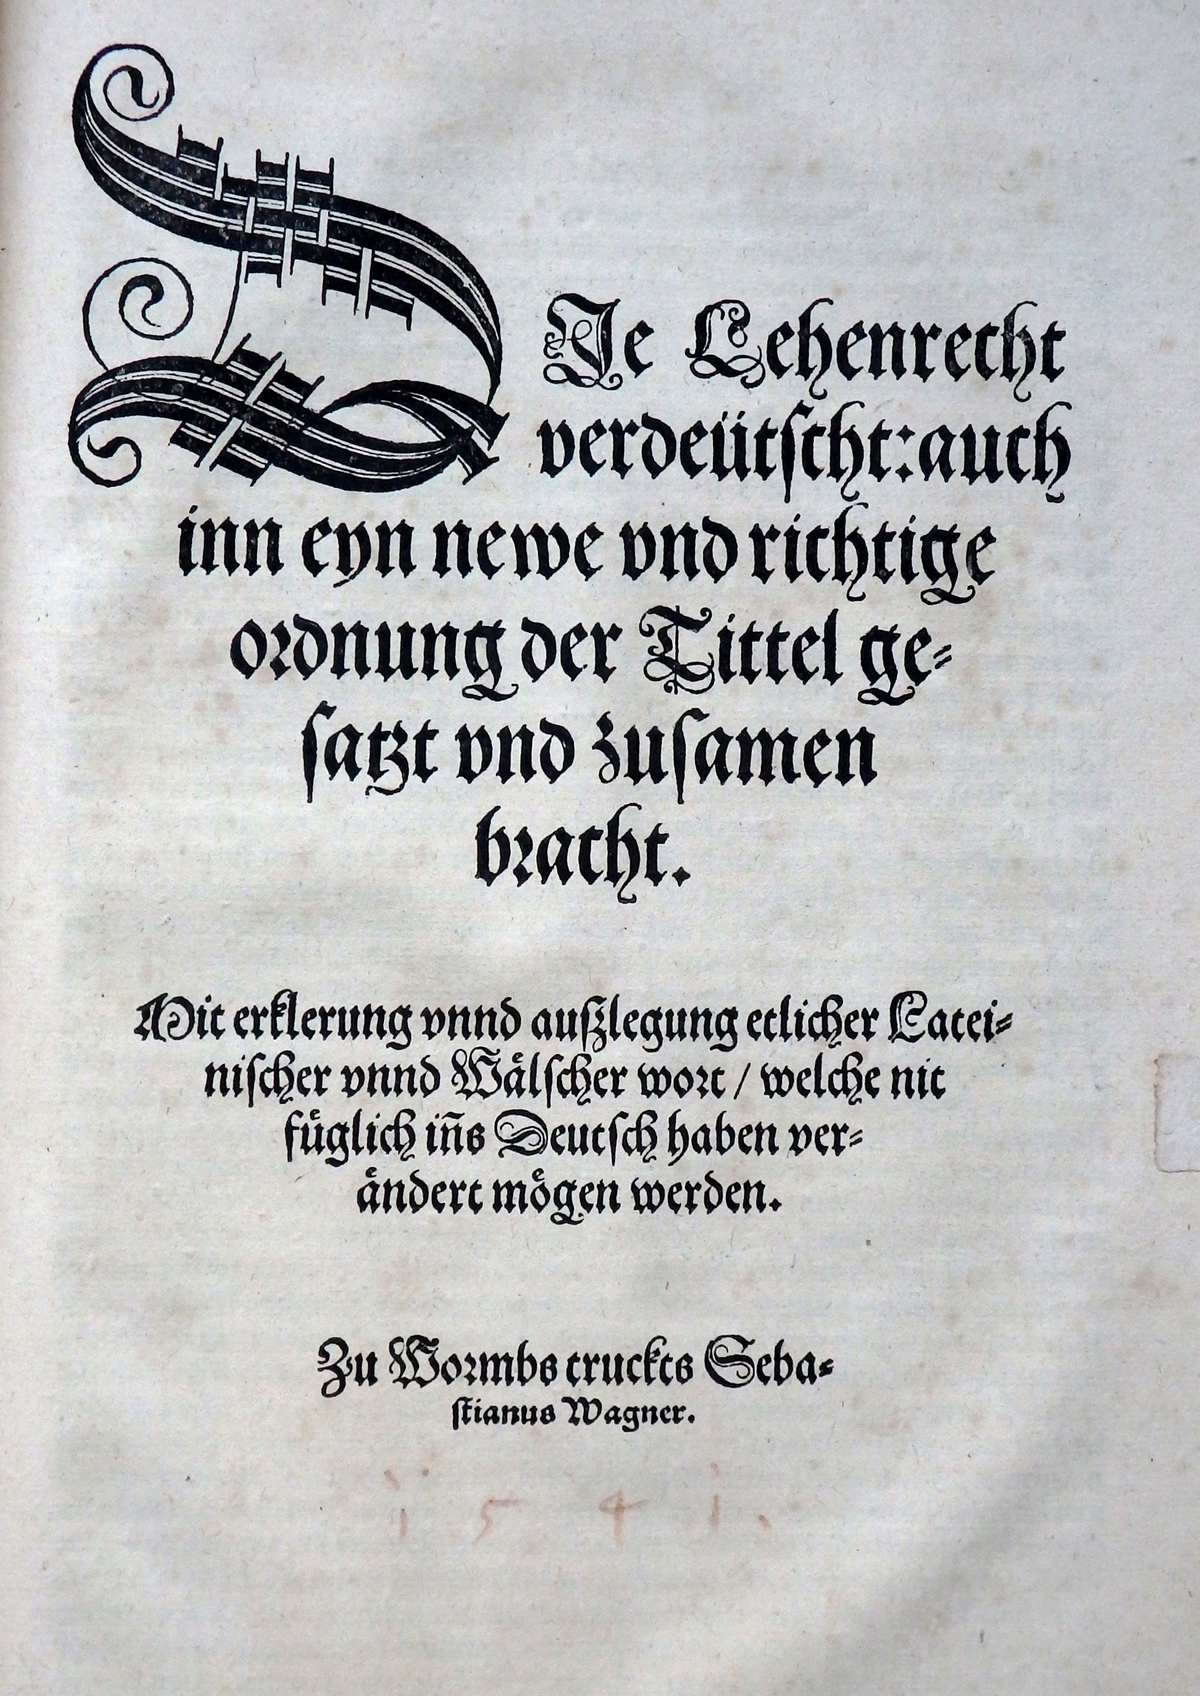 DIe Lehenrecht
verdeütscht: auch
inn eyn newe vnd richtige
ordnung der Tittel ge⸗
satzt vnd zusamen
bracht.
Mit erklerung vnnd außlegung etlicher Latei⸗
nischer vnnd Wälscher wort / welche nit
füglich iñs Deutsch haben ver⸗
ändert mögen werden.
Zu Wormbs truckts Seba⸗
stianus Wagner.
1541.